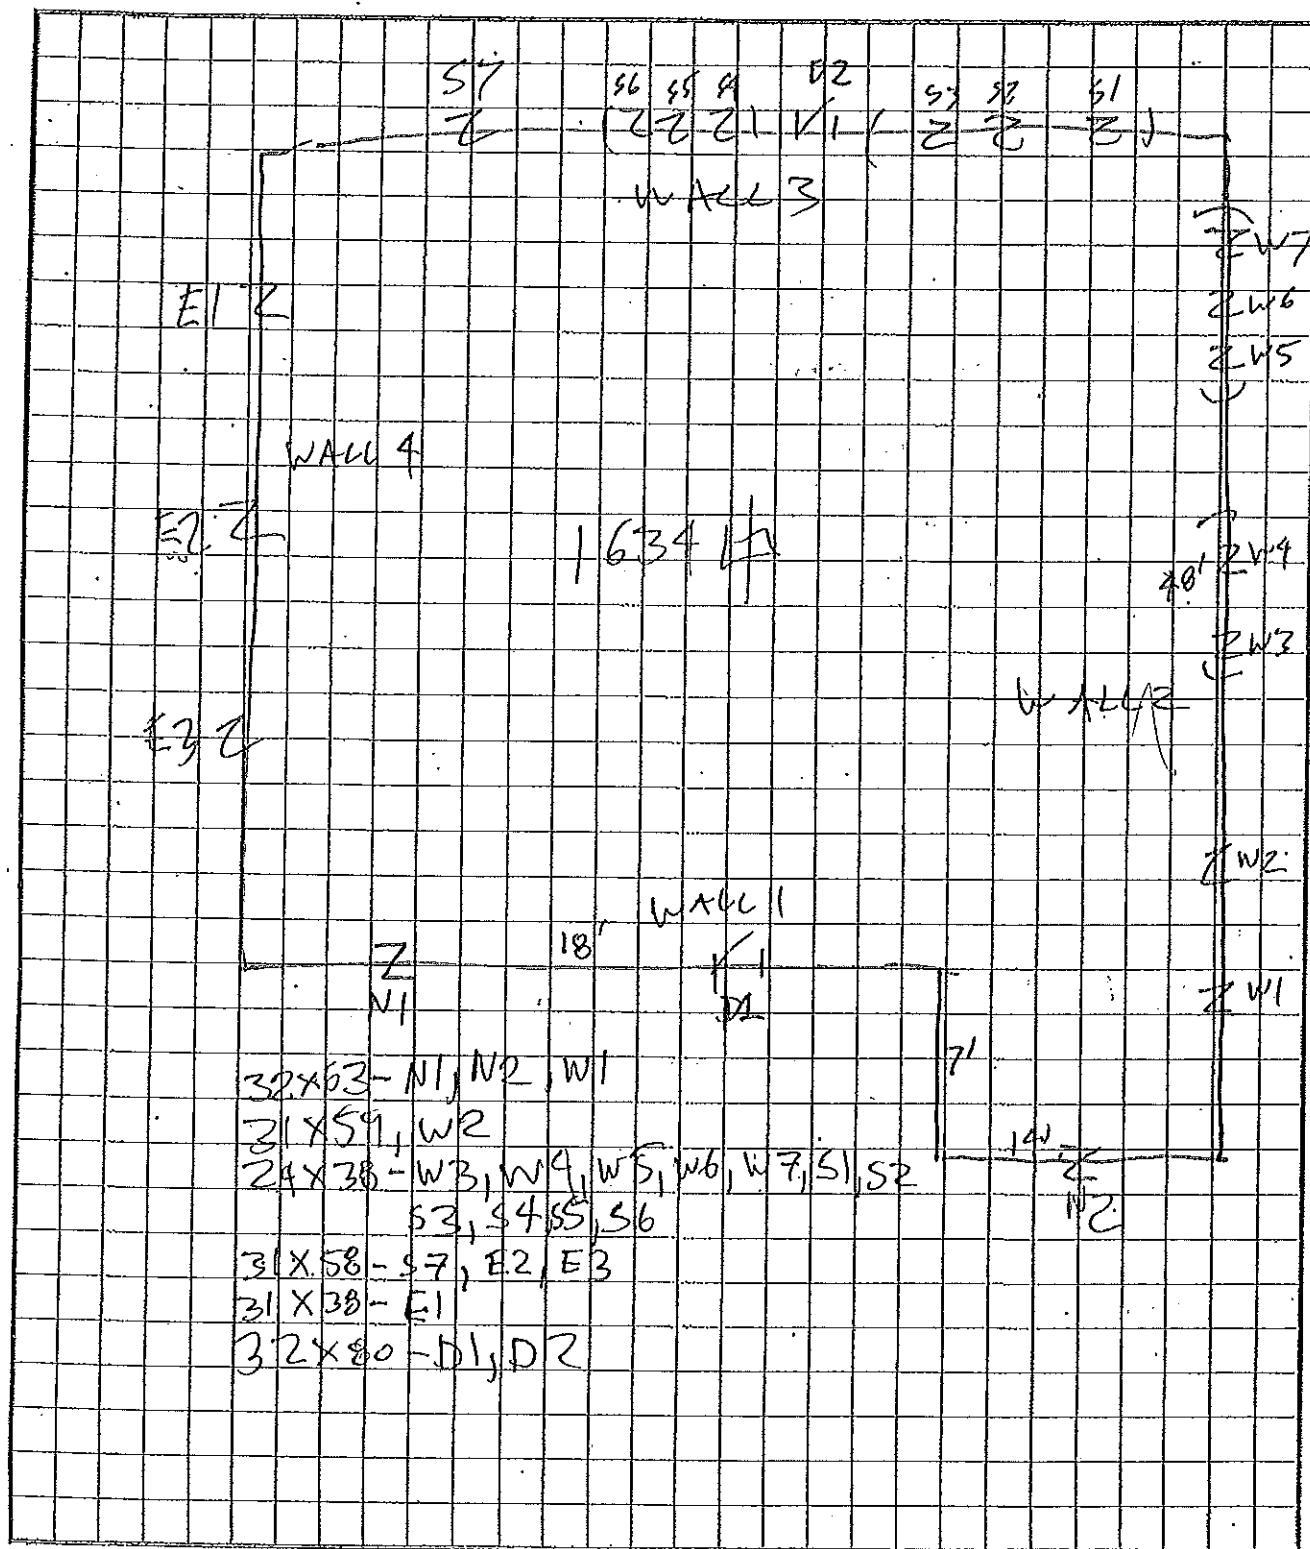 S7 S6 S5 S4 D2 S3 S2 S1
WALL 3
W7
E1
W6
W5
WALL 4
E2
1634
W4
48'
W3
WALL 2
E3
W2
WALL 1
18'
N1
D1
W1
7'
32x63 - N1, N2, W1
31x59, W2
14'
24x38 - W3, W4, W5, W6, W7, S1, S2
S3, S4, S5, S6
N2
31x58 - S7, E2, E3
31x38 - E1
32x80 - D1, D2